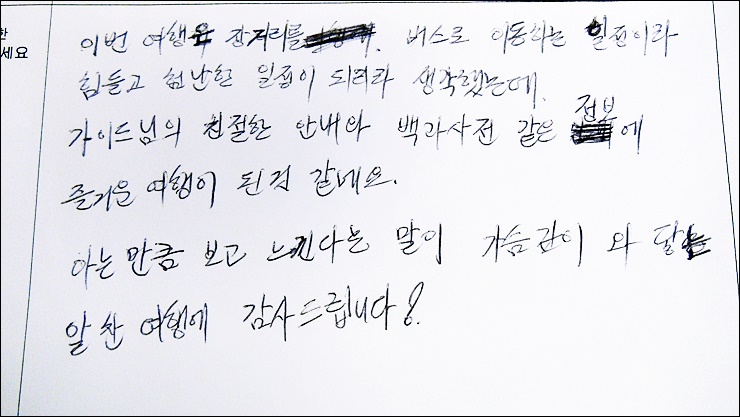 한
세요
이번 여행은 장거리를 버스로 이동하는 일정이라
힘들고 험난한 일정이 되리라 생각했는데.
가이드님의 친절한 안내와 백과사전 같은 정보에
즐거운 여행이 된것 같네요.
아는 만큼 보고 느낀다는 말이 가슴깊이 와 닿는
알찬 여행에 감사드립니다!